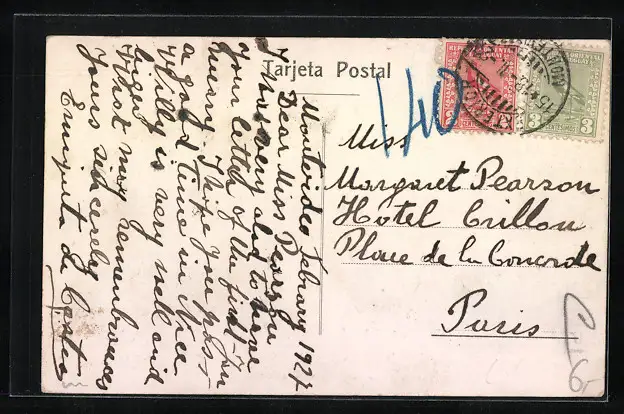 Tarjeta Postal
Montevideo february 1924
Dear Miss Pearson
I was very glad to have
your letter of the first
I hope you pass
a good time in Nice
Willy is very well and
that most remembrances
Yours sincerely
Enriqueta de
140
REPUBLICA ORIENTAL
3
Miss
Margaret Pearson
Hotel Crillon
Place de la Concorde
Paris
6